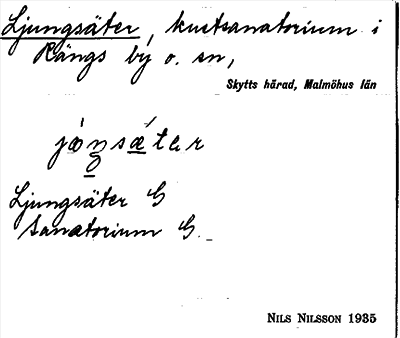 Ljungsäter, kustsanatorium i
Kängs by o. sn,
Skytts härad, Malmöhus län
jo̔nsætər
Ljungsäter G
Sanatorium G.
NILS NILSSON 1935